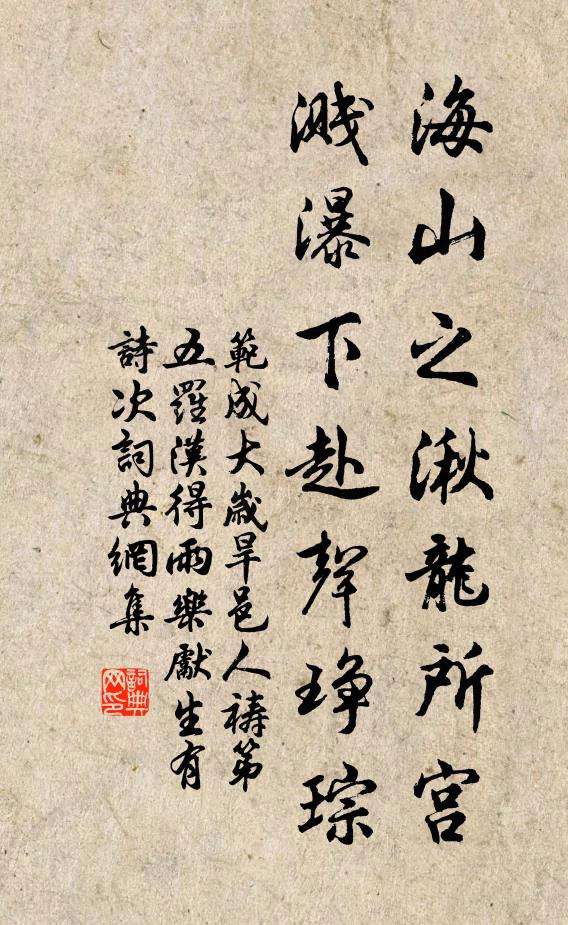 海山之湫龍所宮
濺瀑下赴聲琤琮
範成大歲旱邑人禱第
五羅漢得雨樂獻生有
詩次詞典網集
詞典
网印